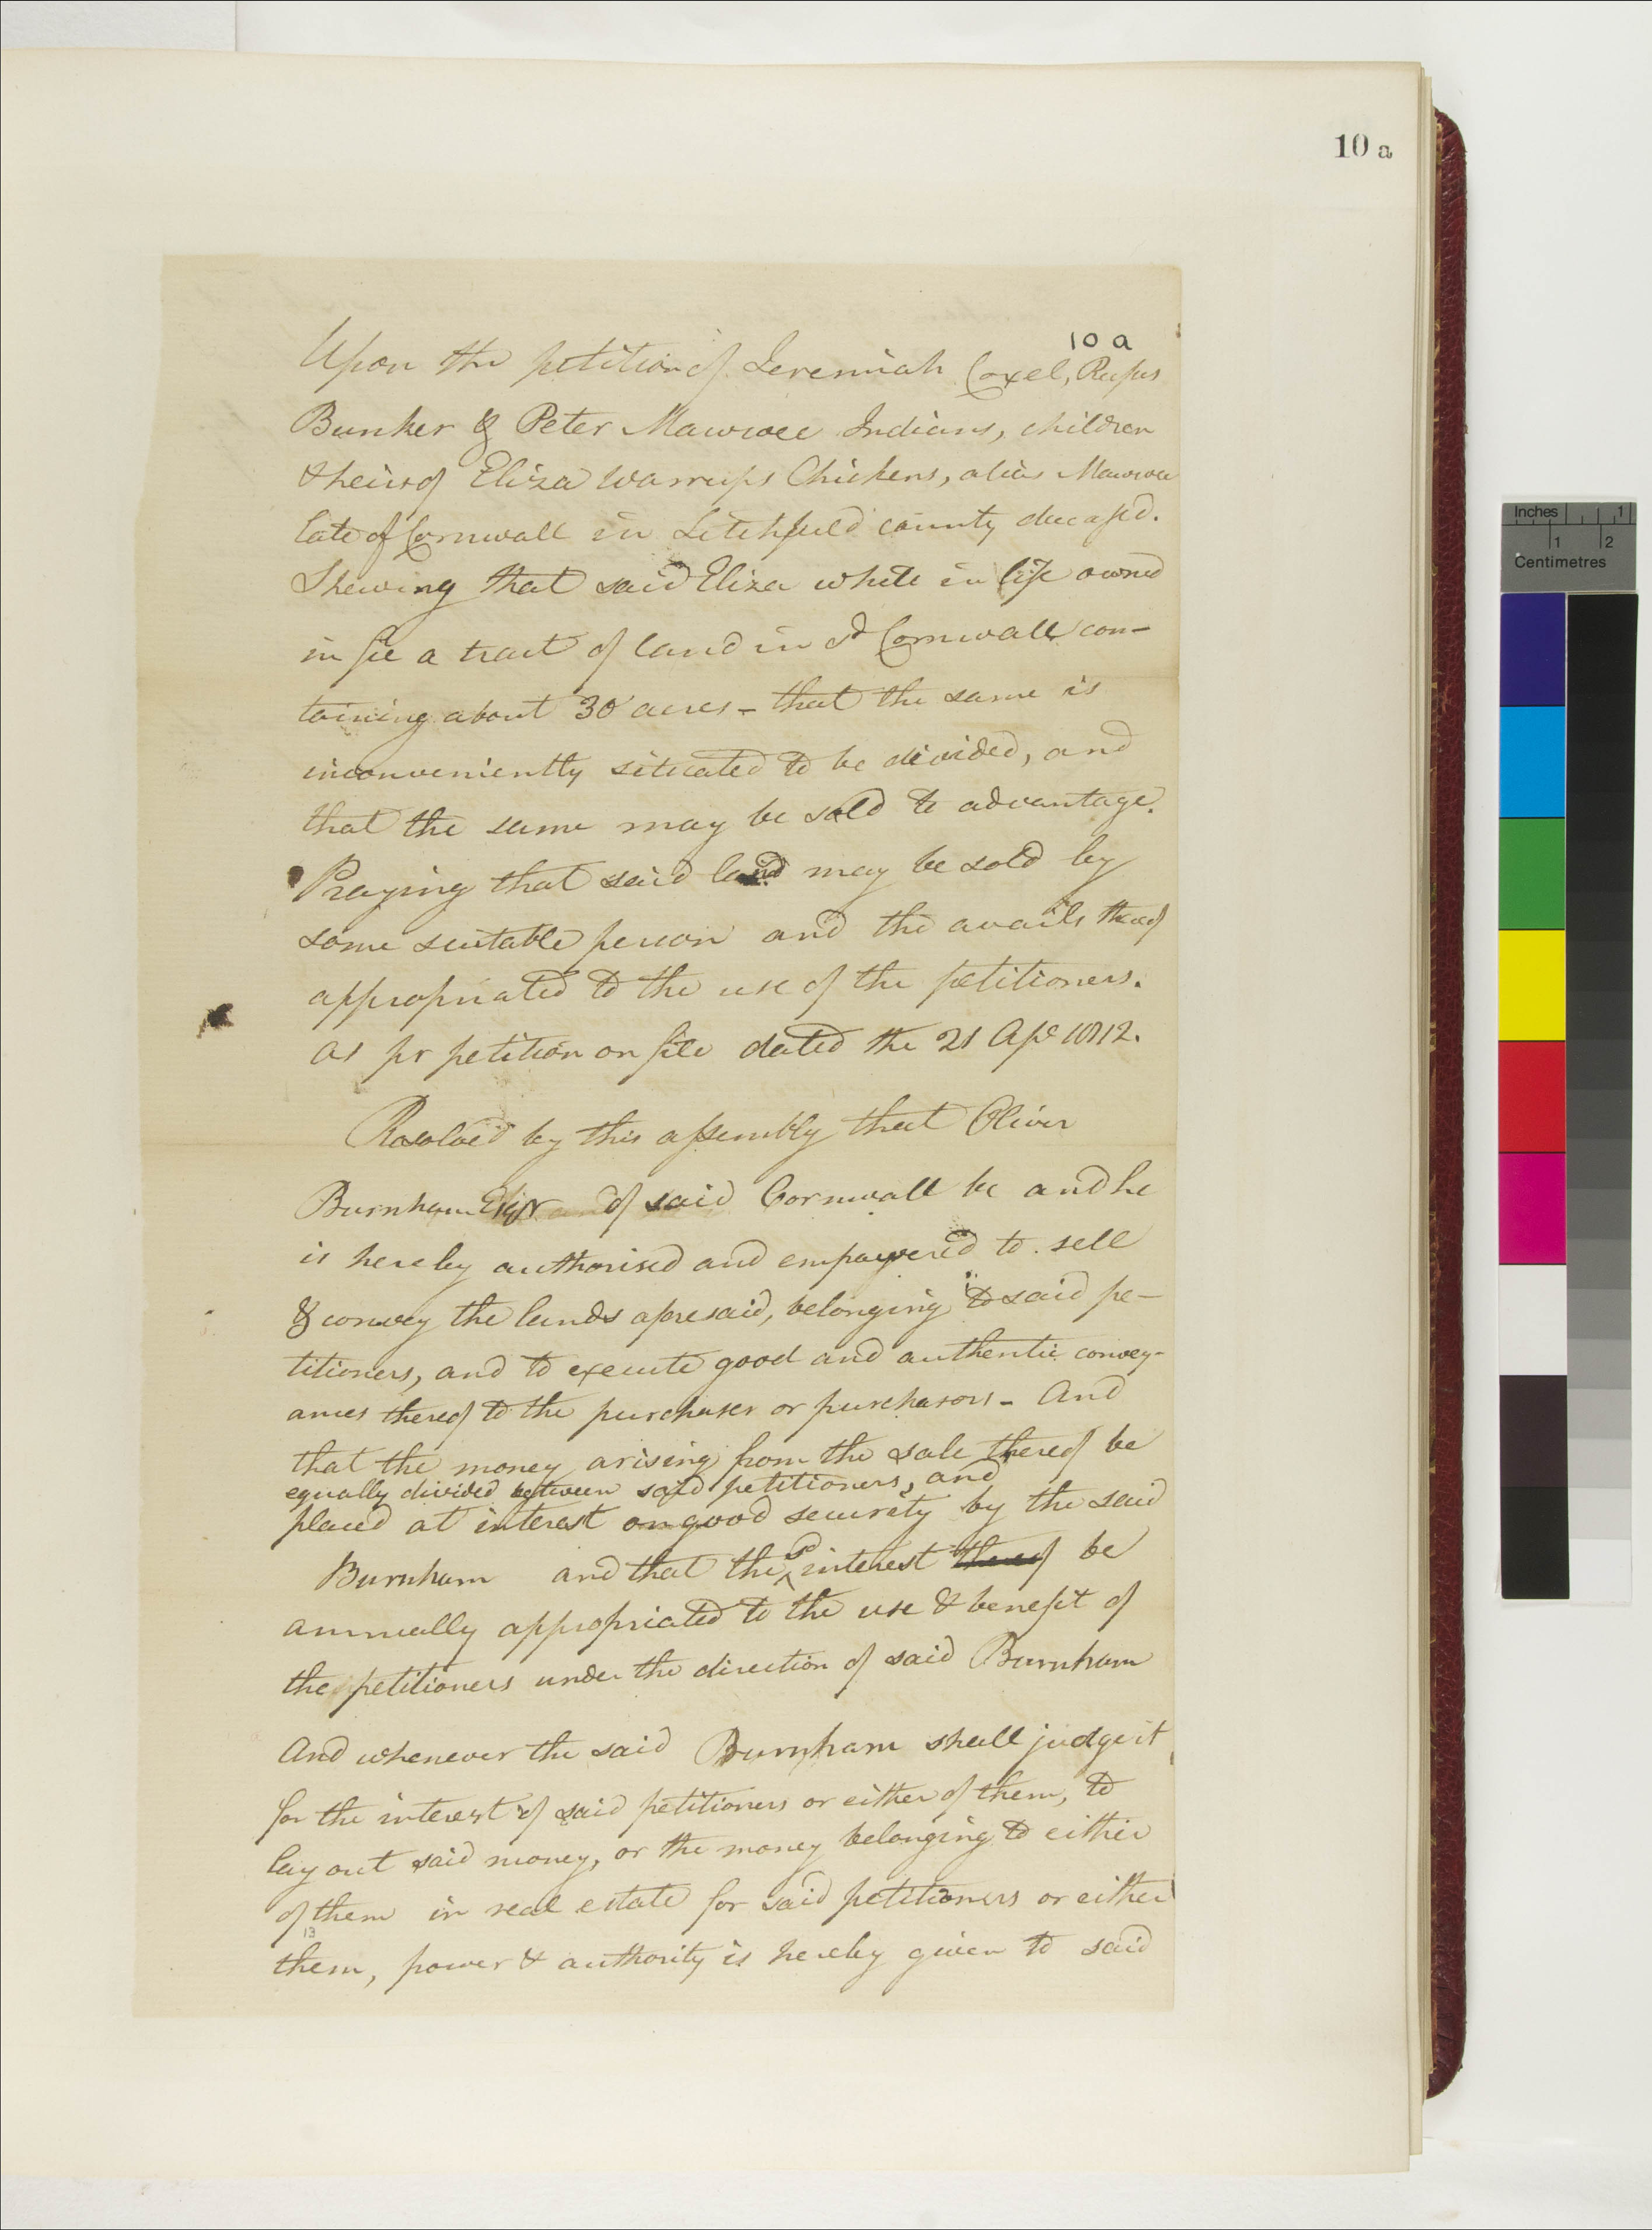 10 a
10 a
Upon the petition of Jeremiah Coxel, Rufus
Bunker & Peter Mawwee Indians, children
& heirs of Eliza Warrups Chickens, alias Mawwee
late of Cornwall in Litchfield county deceased.
Shewing that said Eliza while in life owned
in fee a tract of land in sd Cornwall con-
taining about 30 acres - that the same is
inconveniently situated to be divided, and
that the same may be sold to advantage.
Praying that said land may be sold by
some suitable person and the avails thereof
appropriated to the use of the petitioners.
As pr petition on file dated the 21 Apl 1812.
Resolved by this assembly that Oliver
Burnham Esqr of said Cornwall be and he
is hereby authorised and empowered to sell
& convey the lands aforesaid, belonging to said pe-
titioners, and to execute good and authentic convey-
ances thereof to the purchaser or purchasors - And
that the money arising from the sale thereof be
equally divided between said petitioners, and
placed at interest on good security by the said
Burnham and that the sd interest thereof be
annually appropriated to the use & benefit of
the petitioners under the direction of said Burnham
And whenever the said Burnham shall judge it
for the interest of said petitioners or either of them, to
lay out said money, or the money belonging to either
of them in real estate for said petitioners or either
13
them, power & authority is hereby given to said
Inches 1
1 2
Centimetres